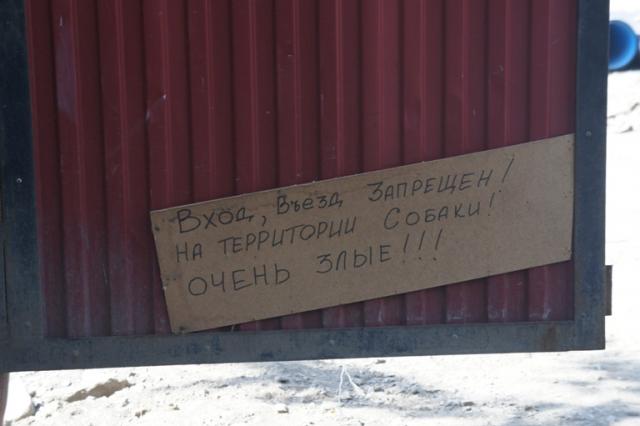 Вход, Въезд Запрещен!
на территории Собаки!
очень злые!!!